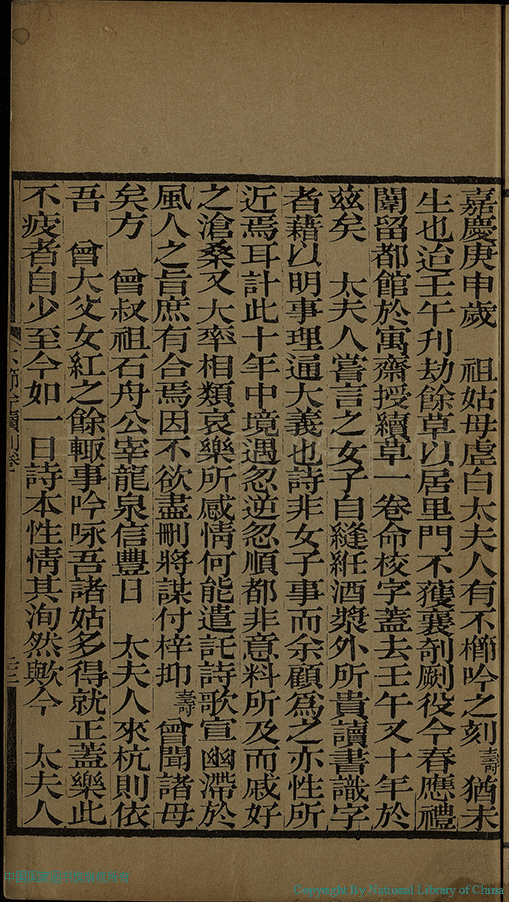 嘉慶庚申歲　祖姑母虛白太夫人有不櫛吟之刻壽猶未
生也迨壬午刋劫餘草以居里門不獲襄剞劂役今春應禮
闈留都館於寓齋授續草一卷命校字蓋去壬午又十年於
茲矣　太夫人嘗言之女子自縫紝酒漿外所貴讀書識字
者藉以明事理通大義也詩非女子事而余顧為之亦性所
近焉耳計此十年中境遇忽逆忽順都非意料所及而戚好
之滄桑又大率相類哀樂所感情何能遣託詩歌宣幽滯於
風人之旨庶有合焉因不欲盡刪將謀付梓抑壽曾聞諸母
矣方　曾叔祖石舟公宰龍泉信豐日　太夫人來杭則依
吾　曾大父女紅之餘輙事吟咏吾諸姑多得就正蓋樂此
不疲者自少至今如一日詩本性情其洵然歟今　太夫人
Copyright By National Library of China